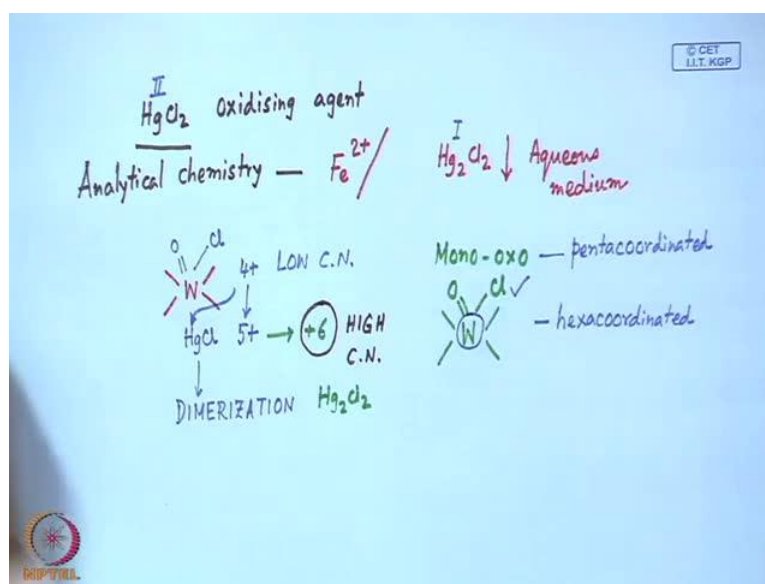 © CET
I.I.T. KGP
II
HgCl2 oxidising agent
Analytical chemistry — Fe2+/
I
Hg2Cl2 ↓ Aqueous
medium
O Cl
W 4+ LOW C.N.
HgCl 5+ → +6 HIGH
C.N.
DIMERIZATION Hg2Cl2
Mono-oxo — pentacoordinated
O Cl ✓
W — hexacoordinated
NPTEL